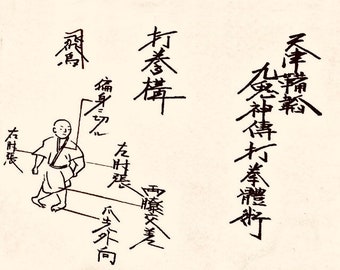 天津鞴韜
九鬼神傳打拳體術
打拳構
飛馬
偏身ニ切ル
左肘張
右肘張
両膝交差
爪出外向